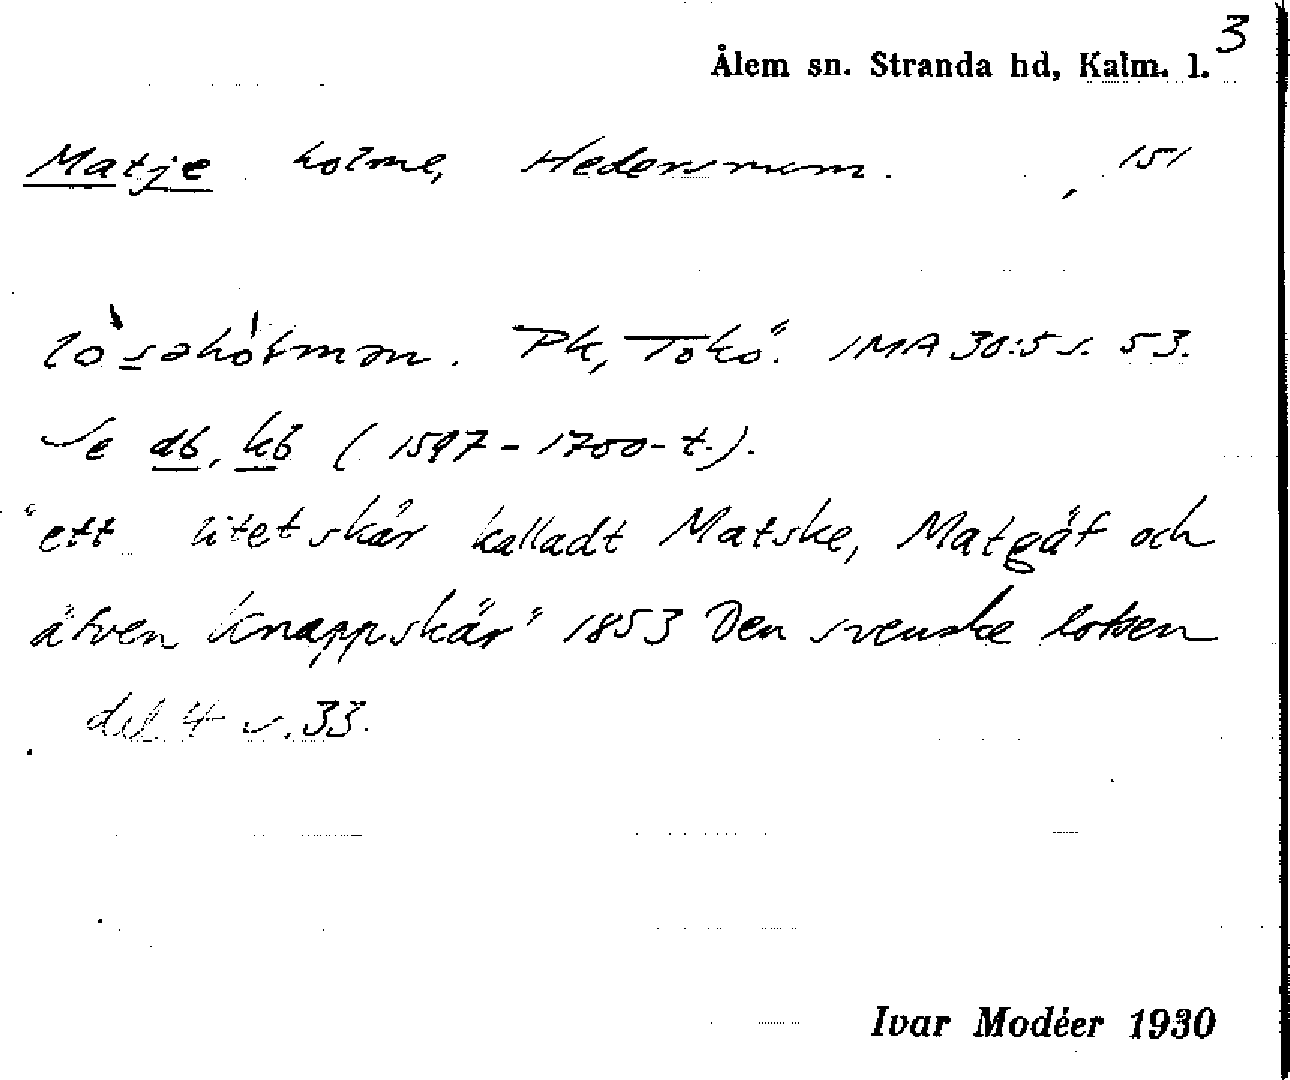 3
Ålem sn. Stranda hd, Kalm. l.
Matje holme, Hedersmum. , 151
Pk, Tokö. IMA 30:5 s. 53.
Se db, kb (1597-1700-t.).
"ett litet skär kalladt Matske, Matgäf och
äfven Knappskär" 1853 Den svenske lotsen
del 4 s. 33.
Ivar Modéer 1930